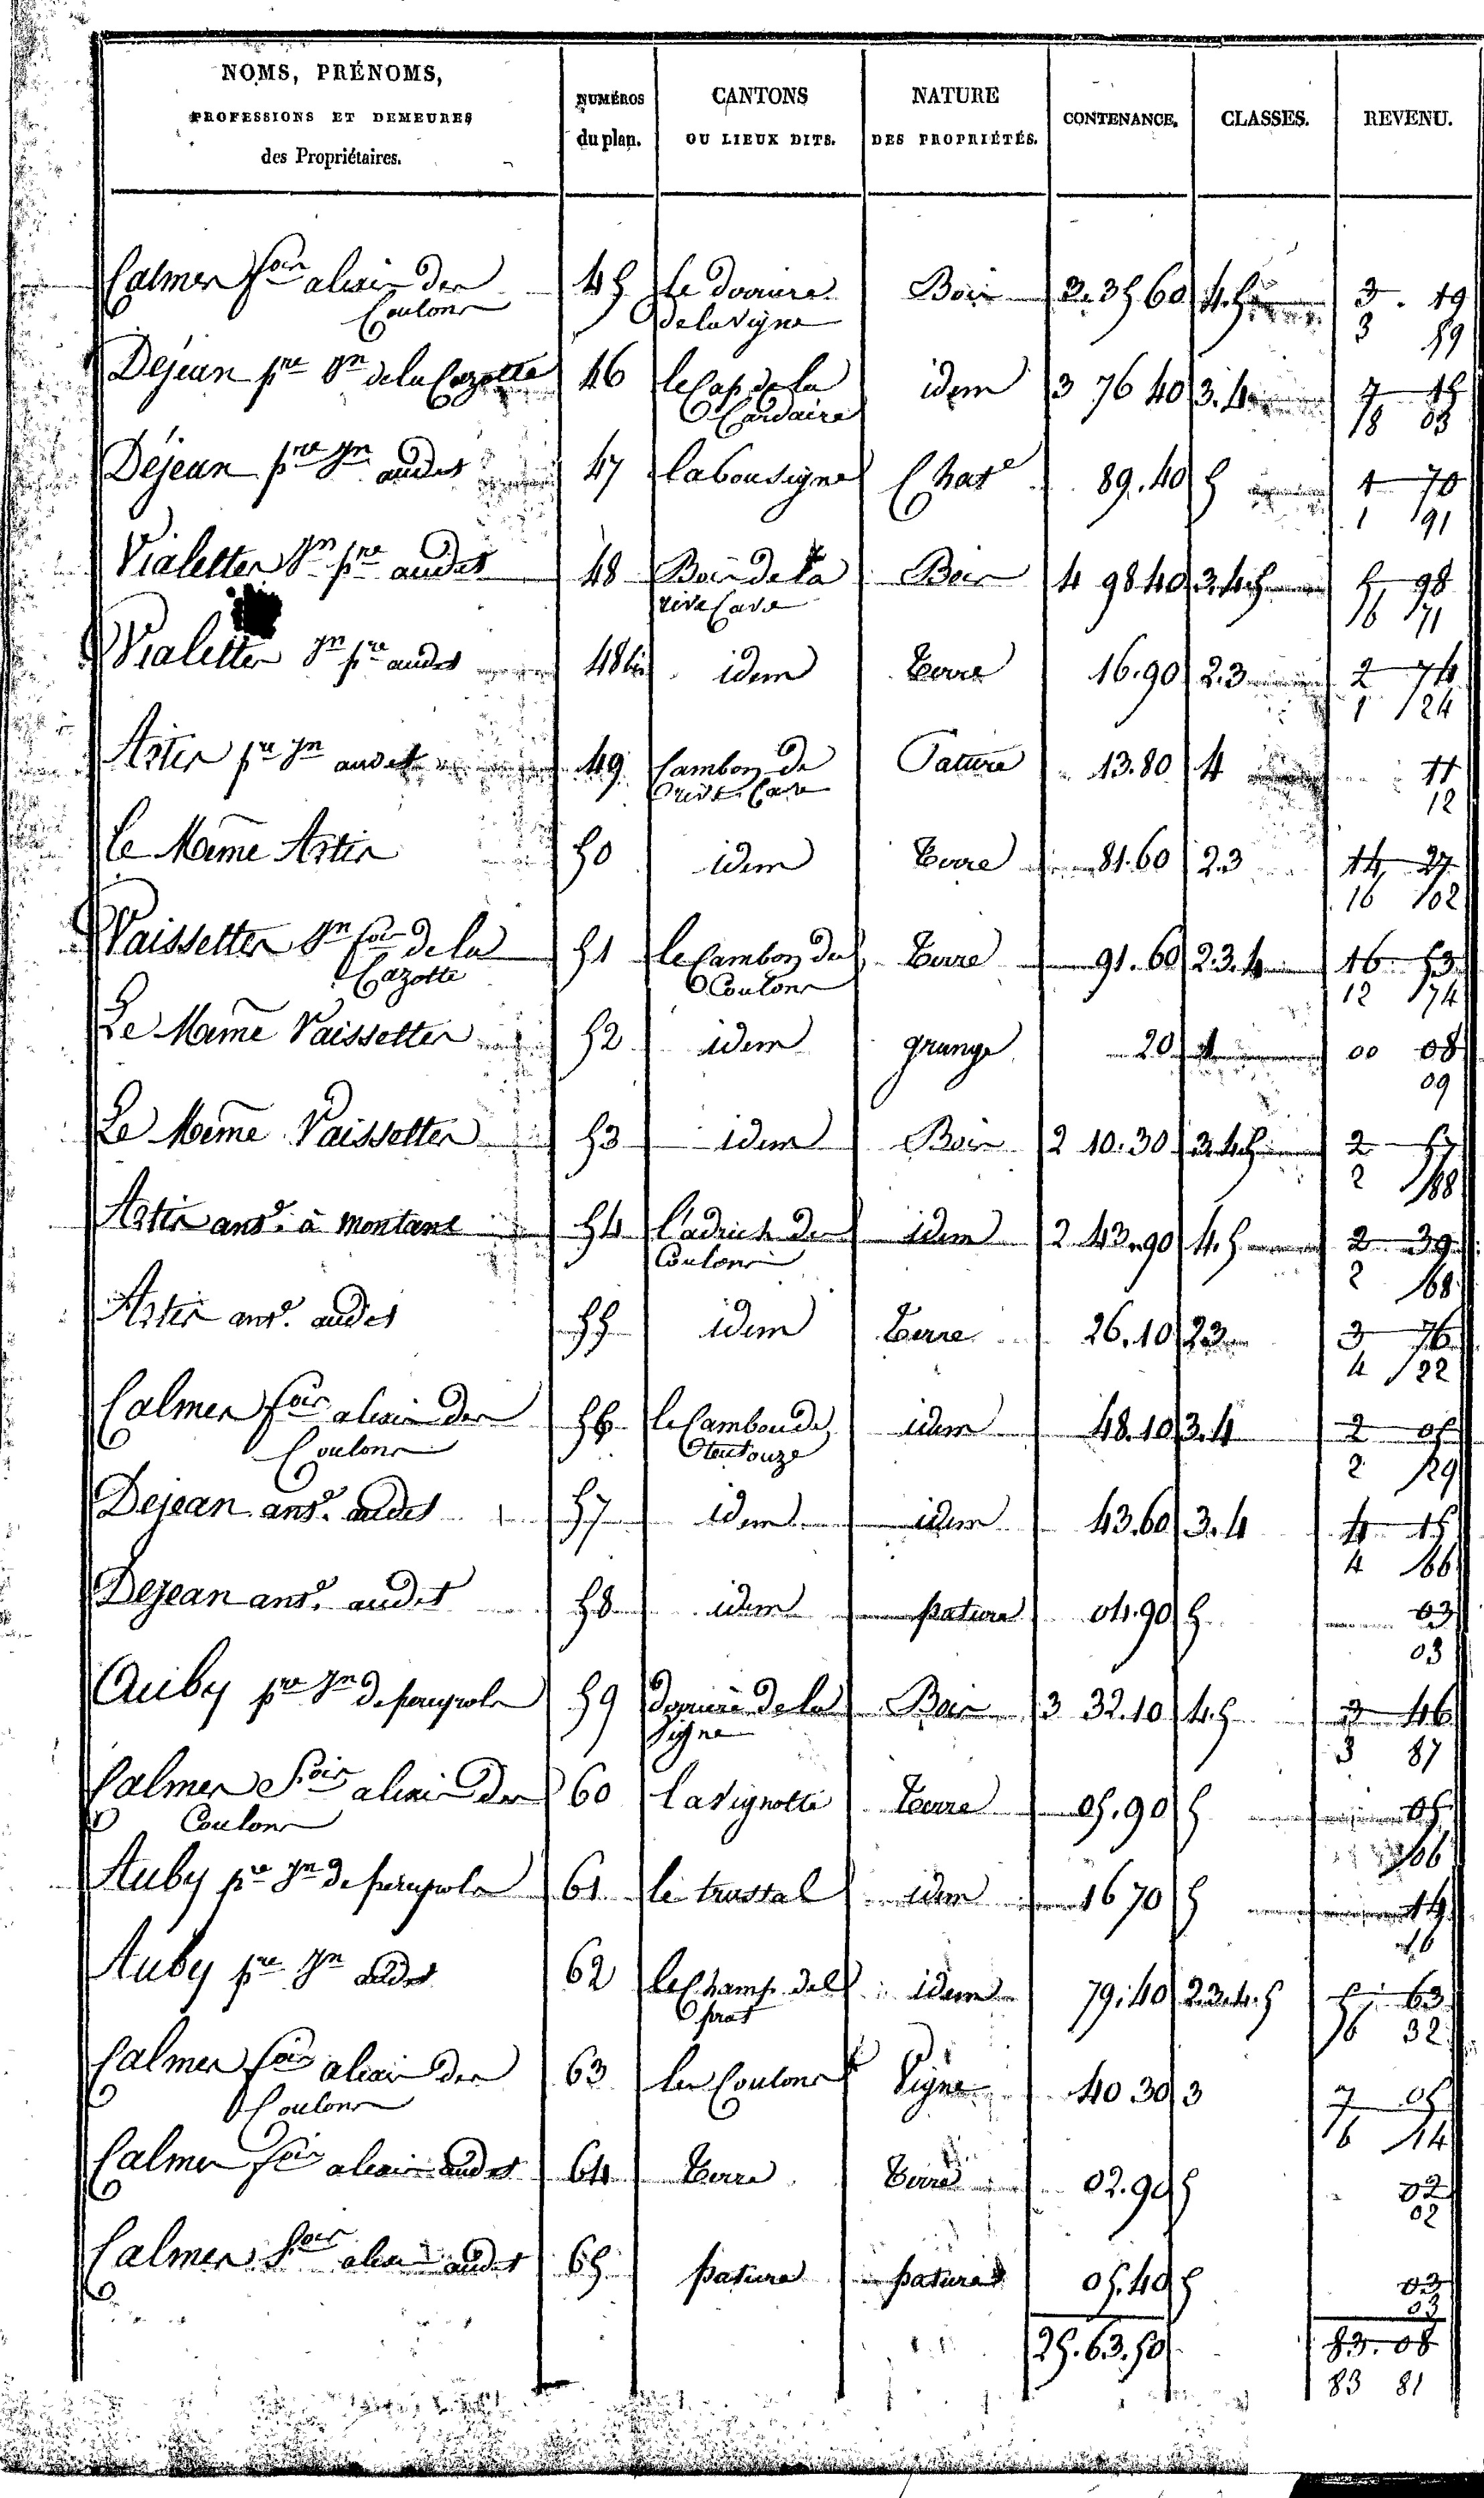 NOMS, PRÉNOMS,
PROFESSIONS ET DEMEURES
des Propriétaires.
NUMÉROS
du plan.
CANTONS
OU LIEUX DITS.
NATURE
DES PROPRIÉTÉS.
CONTENANCE.
CLASSES.
REVENU.
Calmes fois alexis des 45 le Bois 3. 35 60 4.5 3 . 19
Coulons de la vigne 3 59
Déjean pre Jn de la Cazotte 46 le Cap de la idem 3 76 40 3.4 7 15
18 03
Déjean pre Jn audit 47 Chate 89.40 5 1 70
1 91
Vialettes Jn pre audit 48 Bois de la Bois 4 98 40 3.4.5 5 98
rive Cave 6 71
Vialettes Jn pre audit 48 bis idem Terre 16.90 2.3 2 74
1 24
pre Jn audit 49 Cambon de Pature 13.80 4 11
rive Cave 12
Le Meme 50 idem Terre 81.60 2.3 14 27
16 02
Vaissettes Jn fois de la 51 le Cambon des Terre 91.60 2.3.4 16 53
Cazotte Coulons 12 74
Le Meme Vaissettes 52 idem grange 20 1 00 08
09
Le Meme Vaissettes 53 idem Bois 2 10.30 3.4.5 2 57
2 88
ante à montans 54 l'adrech des idem 2 43.90 4.5 2 39
Coulons 2 68
ante audit 55 idem Terre 26.10 2.3 3 76
4 22
Calmes fois alexis des 56 le Cambon de idem 48.10 3.4 2 05
Coulons 2 29
Dejean ante audit 57 idem idem 43.60 3.4 4 15
4 66
Dejean ante audit 58 idem pature 04.90 5 03
03
Auby pre Jn de 59 de la Bois 3 32.10 4.5 3 46
vigne 3 87
Calmes fois alexis des 60 la vignotte Terre 05.90 5 05
Coulons 06
Auby pre Jn de 61 le idem 16 70 5 14
16
Auby pre Jn audit 62 le Champ del idem 79.40 2.3.4.5 5 63
prat 6 32
Calmes fois alexis des 63 les Coulons Vigne 40 30 3 7 05
Coulons 6 14
Calmes fois alexis audit 64 Terre Terre 02.90 5 02
02
Calmes fois alexis audit 65 pature pature 05.40 5 03
03
25.63.50 83.08
83 81